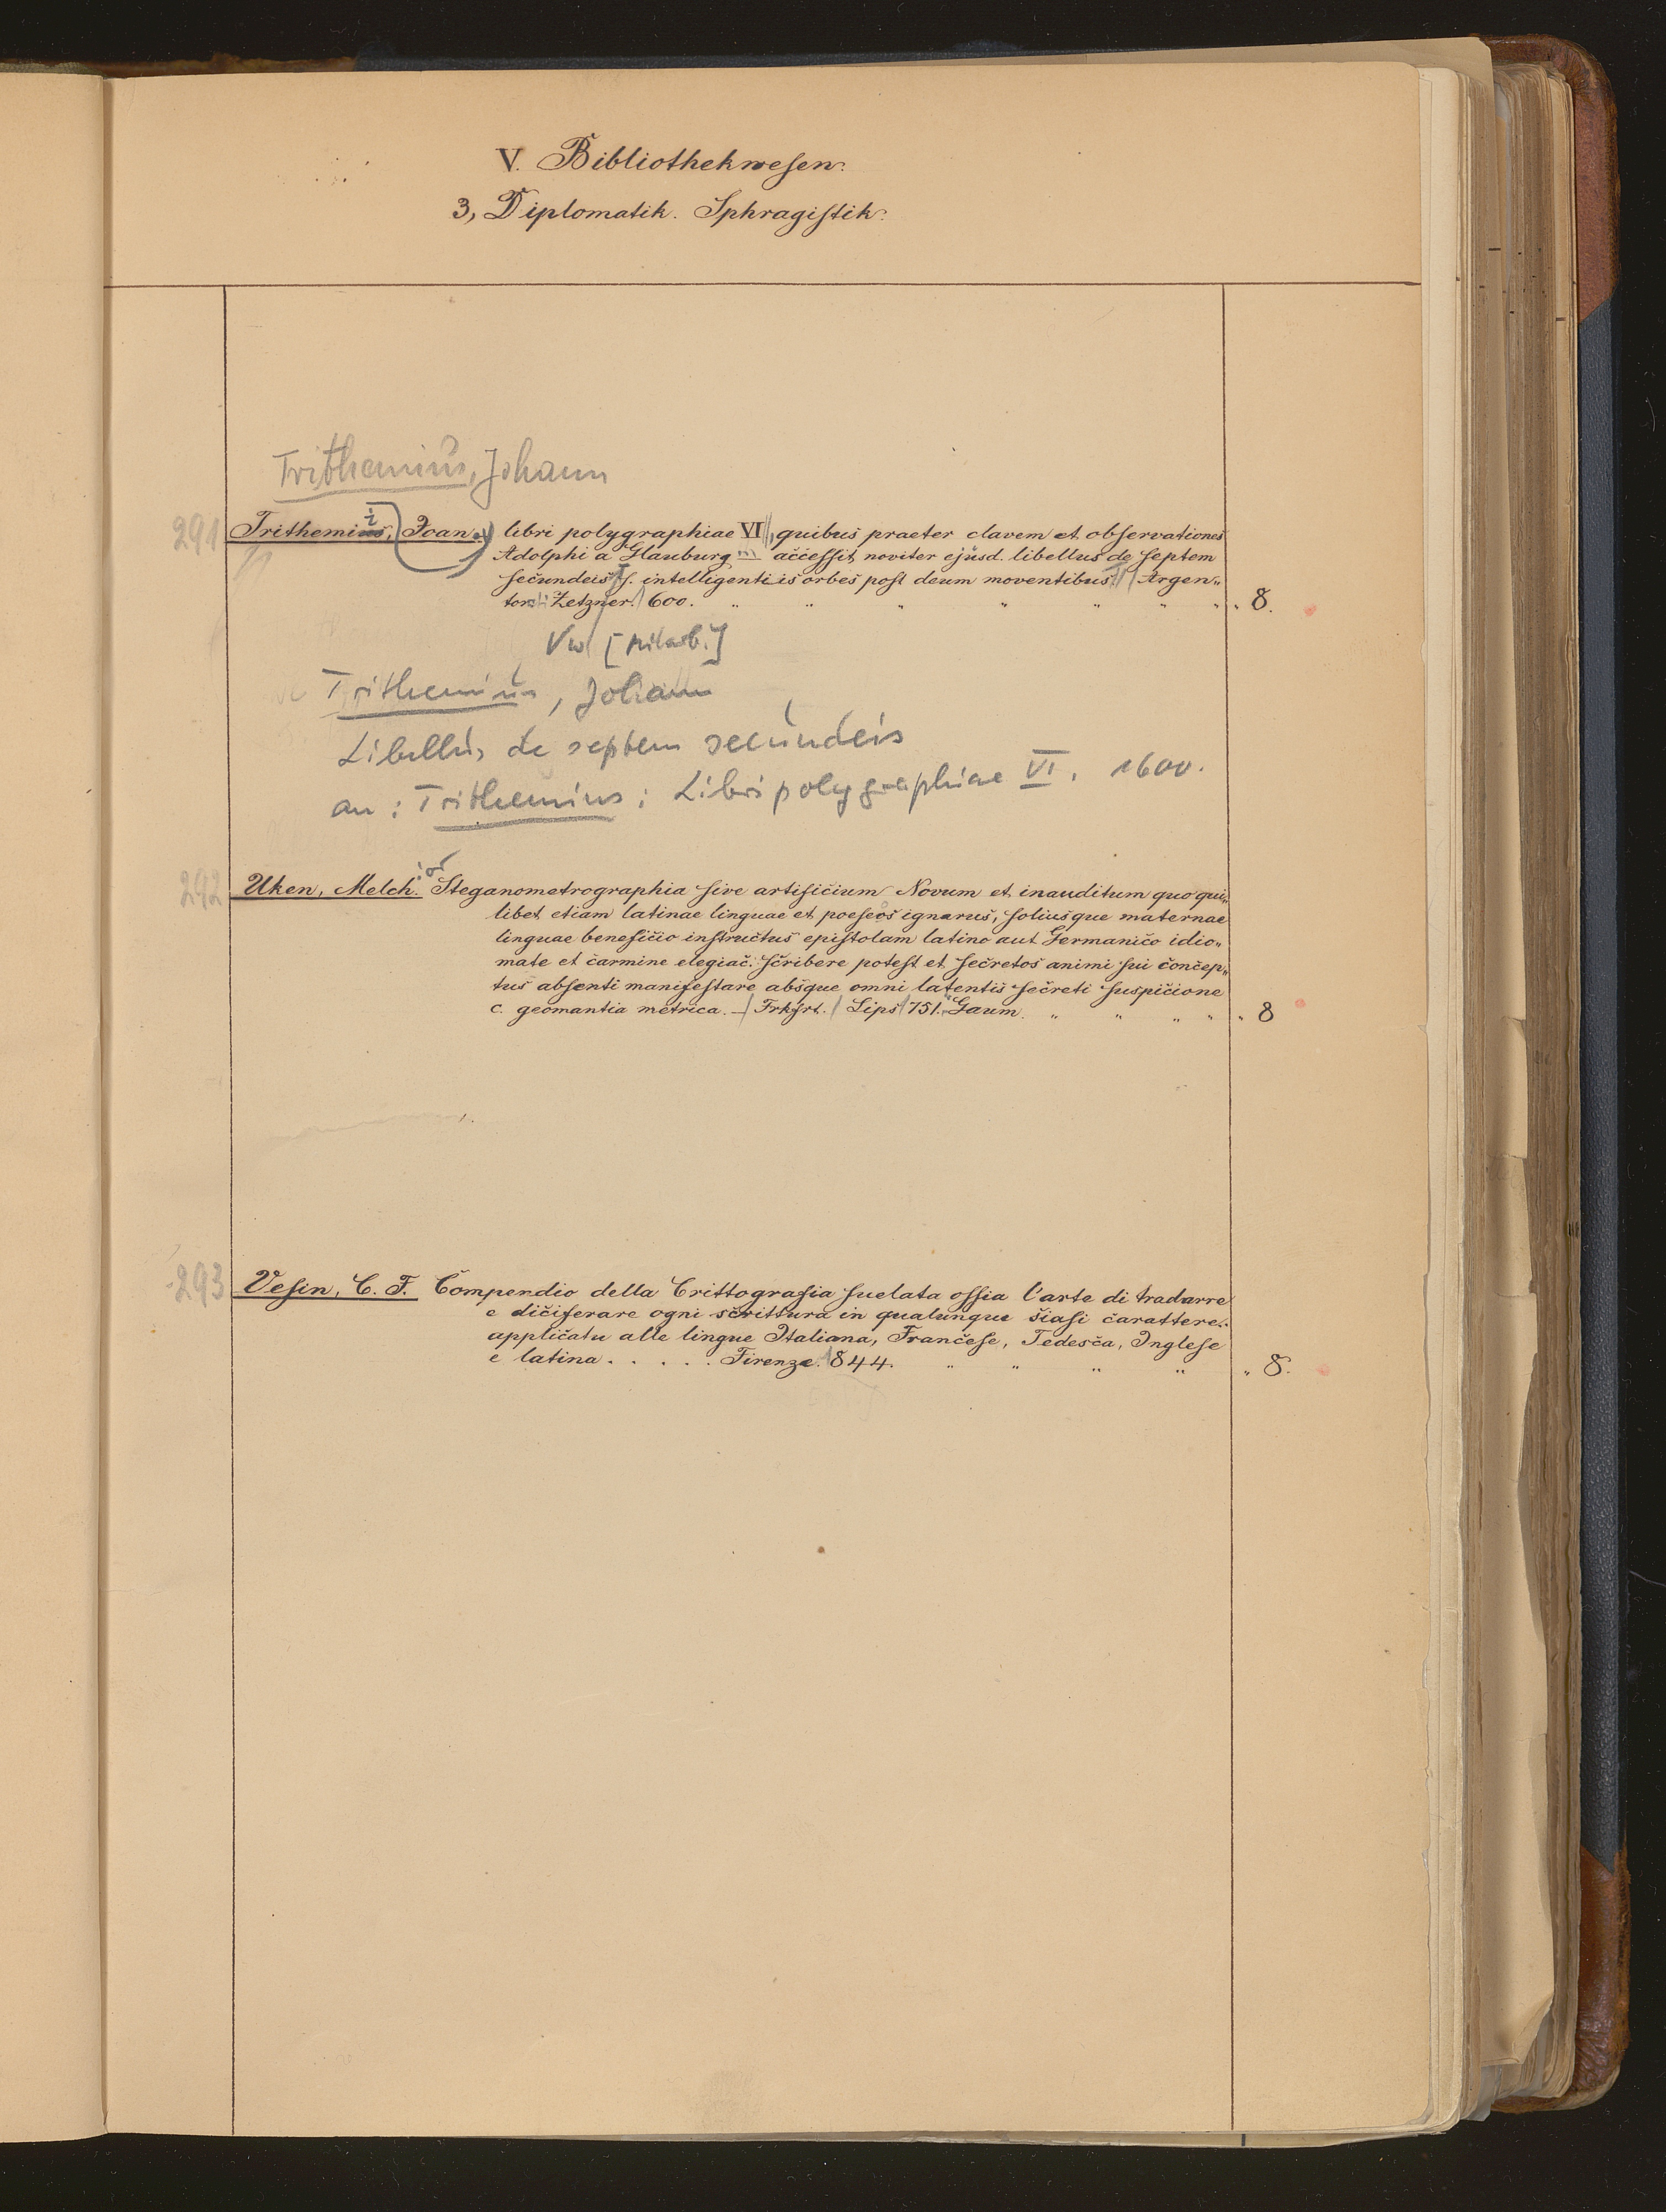 V. Bibliothekwesen.
3, Diplomatik. Sphragistik.
Trithemius, Johann
291 Trithemius, Joan. libri polygraphiae VI, quibus praeter clavem et observationes
Adolphi a Glauburg accessit noviter ejusd. libellus de septem
secundeis s. intelligentiis orbes post deum moventibus. Argen„
tor. Zetzner. 600. „ „ „ „ „ „ „ „ 8.
Vw [Mitarb.]
Trithemius, Johann
Libellus de septem secundeis
an: Trithemius: Libri polygraphiae VI. 1600.
292 Uken, Melch.ior Steganometrographia sive artificium Novum et inauditum quo qui„
libet etiam latinae linguae et poeseos ignarus, soliusque maternae
linguae beneficio instructus epistolam latino aut Germanico idio„
mate et carmine elegiac. scribere potest et secretos animi sui concep„
tus absenti manifestare absque omni latentis secreti suspicione
c. geomantia metrica. – Frkfrt. Lips 751. Gaum. „ „ „ „ „ 8
293 Vesin, C. F. Compendio della Crittografia suelata ossia l'arte di tradarre
e diciferare ogni scrittura in qualunque siasi carattere.
applicatu alle lingue Italiana, Francese, Tedesca, Inglese
e latina . . . . . Firenze. 1844. „ „ „ „ „ 8.